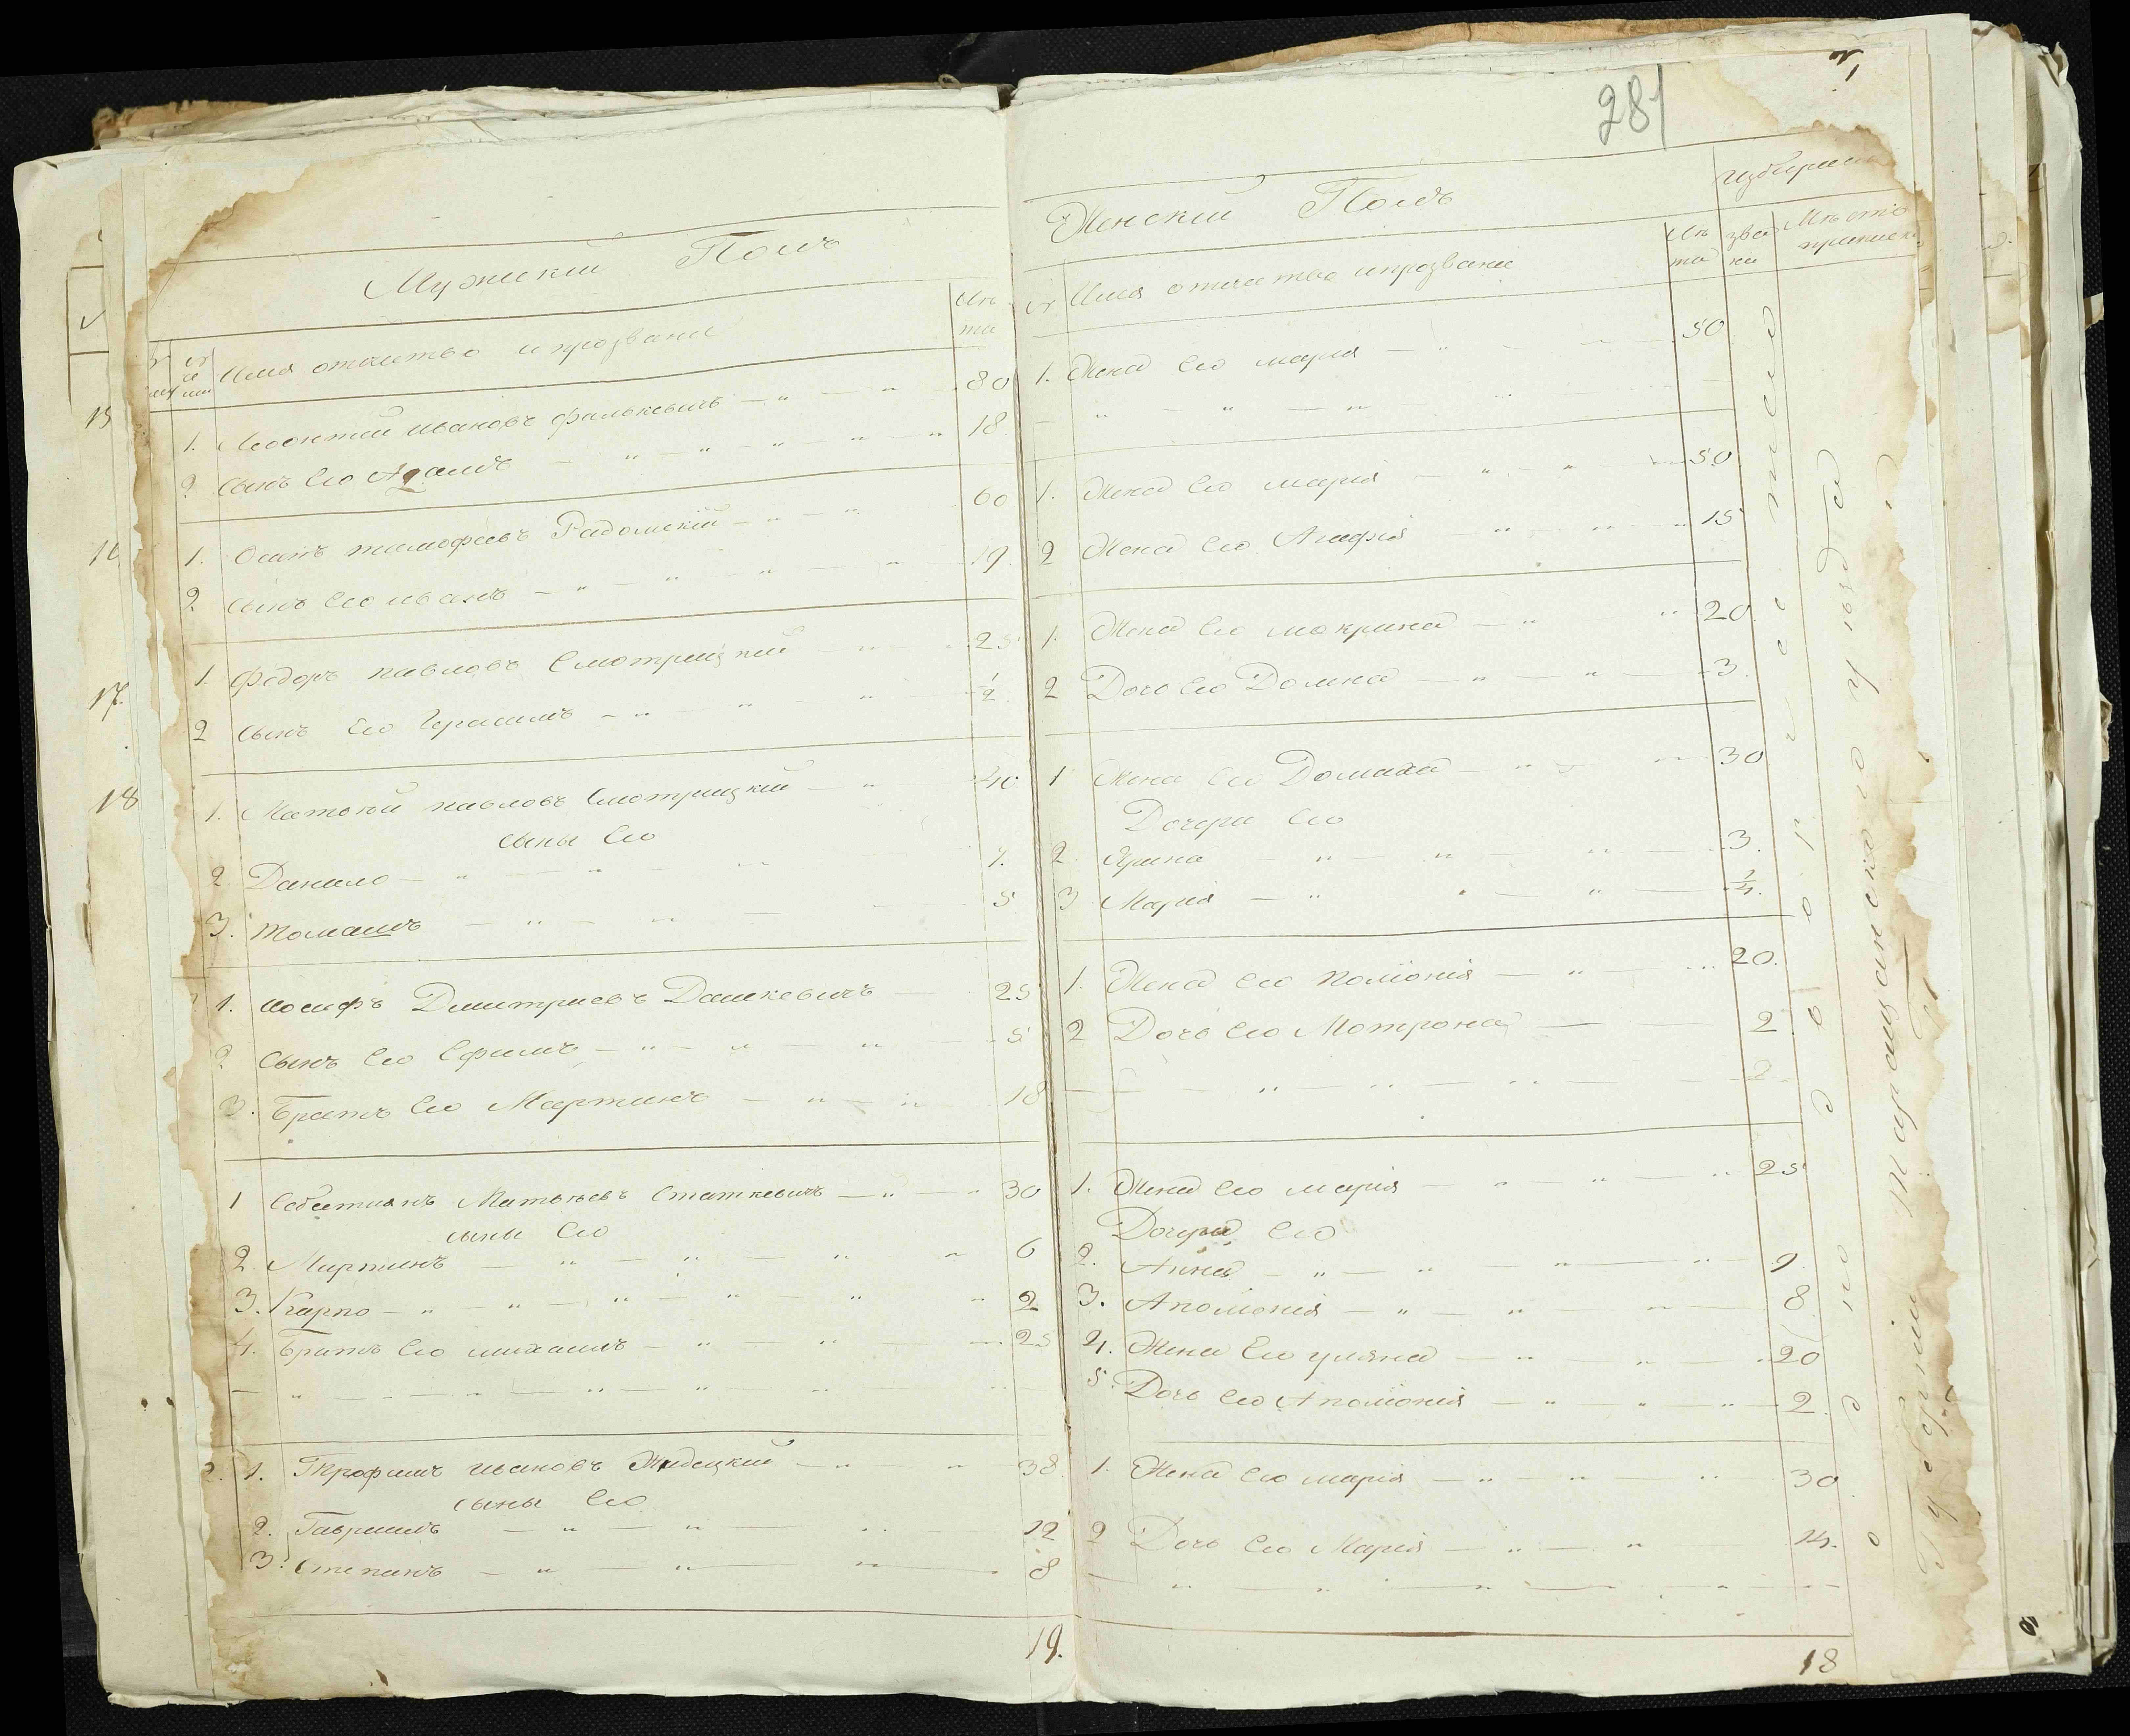 281
Мужский Полъ
Имя отчество и прозвание
Лѣ
та
15
1. Леонтий ивановъ фалькевичъ — 80
2 Сынъ Его Адамъ — 18
16
1. Осипъ тимофеевъ Радомский — 60
2 Сынъ Его иванъ — 19
17.
1. Федоръ павловъ Смотрицкий — 25
2 Сынъ Его Герасимъ — 1/2
18
1. Матвѣй павловъ Смотрицкий — 40
Сыны Его
2 Данило — 7.
3. томашъ — 5
1. иосифъ Дмитриевъ Дашкевичъ — 25
2 Сынъ Его Ефимъ — 5
3. Братъ Его Мартинъ — 18
1 Себастиянъ Матвѣевъ Статкевичъ — 30
сыны Его
2. Мартинъ — 6
3. Карпо — 2
4. Братъ Его михаилъ — 25
1. Трофимъ ивановъ — 38
Сыны Его
2. Гавриилъ — 12
3. Степанъ — 8
19.
Женский Полъ
Имя отчество и прозвание
Лѣ
та
зва
ния
Мѣсто
1. Жена Его мария — 50
1. Жена Его мария — 50
2 Жена Его Агафия — 15
1. Жена Его мокрина — 20
2 Дочь Его Домна — 3.
1 Жена Его Домаха — 30
Дочери Его
2. — 3.
3 Мария — 1/4.
1. Жена Его полионія — 20.
2 Дочь Его Мотрона — 2
2
1. Жена Его марія — 25
Дочери Его
2. Анна — 9
3. Аполіонія — 8
4. Жена Его уляна — 20
5. Дочь Его Аполіонія — 2.
1. Жена Его марія — 30
2 Дочь Его Марія — 14.
18
таращанского уѣзда